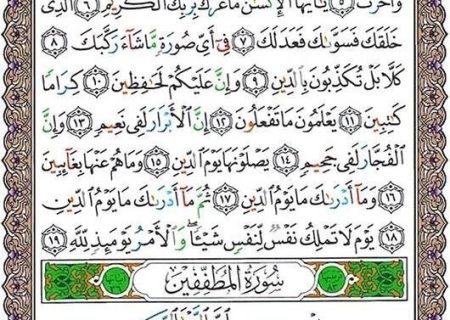 وَأَخَّرَتْ ٥ يَٰٓأَيُّهَا ٱلْإِنسَٰنُ مَا غَرَّكَ بِرَبِّكَ ٱلْكَرِيمِ ٦ ٱلَّذِى
خَلَقَكَ فَسَوَّىٰكَ فَعَدَلَكَ ٧ فِىٓ أَىِّ صُورَةٍ مَّا شَآءَ رَكَّبَكَ ٨
كَلَّا بَلْ تُكَذِّبُونَ بِٱلدِّينِ ٩ وَإِنَّ عَلَيْكُمْ لَحَٰفِظِينَ ١٠ كِرَامًا
كَٰتِبِينَ ١١ يَعْلَمُونَ مَا تَفْعَلُونَ ١٢ إِنَّ ٱلْأَبْرَارَ لَفِى نَعِيمٍ ١٣ وَإِنَّ
ٱلْفُجَّارَ لَفِى جَحِيمٍ ١٤ يَصْلَوْنَهَا يَوْمَ ٱلدِّينِ ١٥ وَمَا هُمْ عَنْهَا بِغَآئِبِينَ
١٦ وَمَآ أَدْرَىٰكَ مَا يَوْمُ ٱلدِّينِ ١٧ ثُمَّ مَآ أَدْرَىٰكَ مَا يَوْمُ ٱلدِّينِ
١٨ يَوْمَ لَا تَمْلِكُ نَفْسٌ لِّنَفْسٍ شَيْـًٔا ۖ وَٱلْأَمْرُ يَوْمَئِذٍ لِّلَّهِ ١٩
سُورَةُ ٱلْمُطَفِّفِينَ